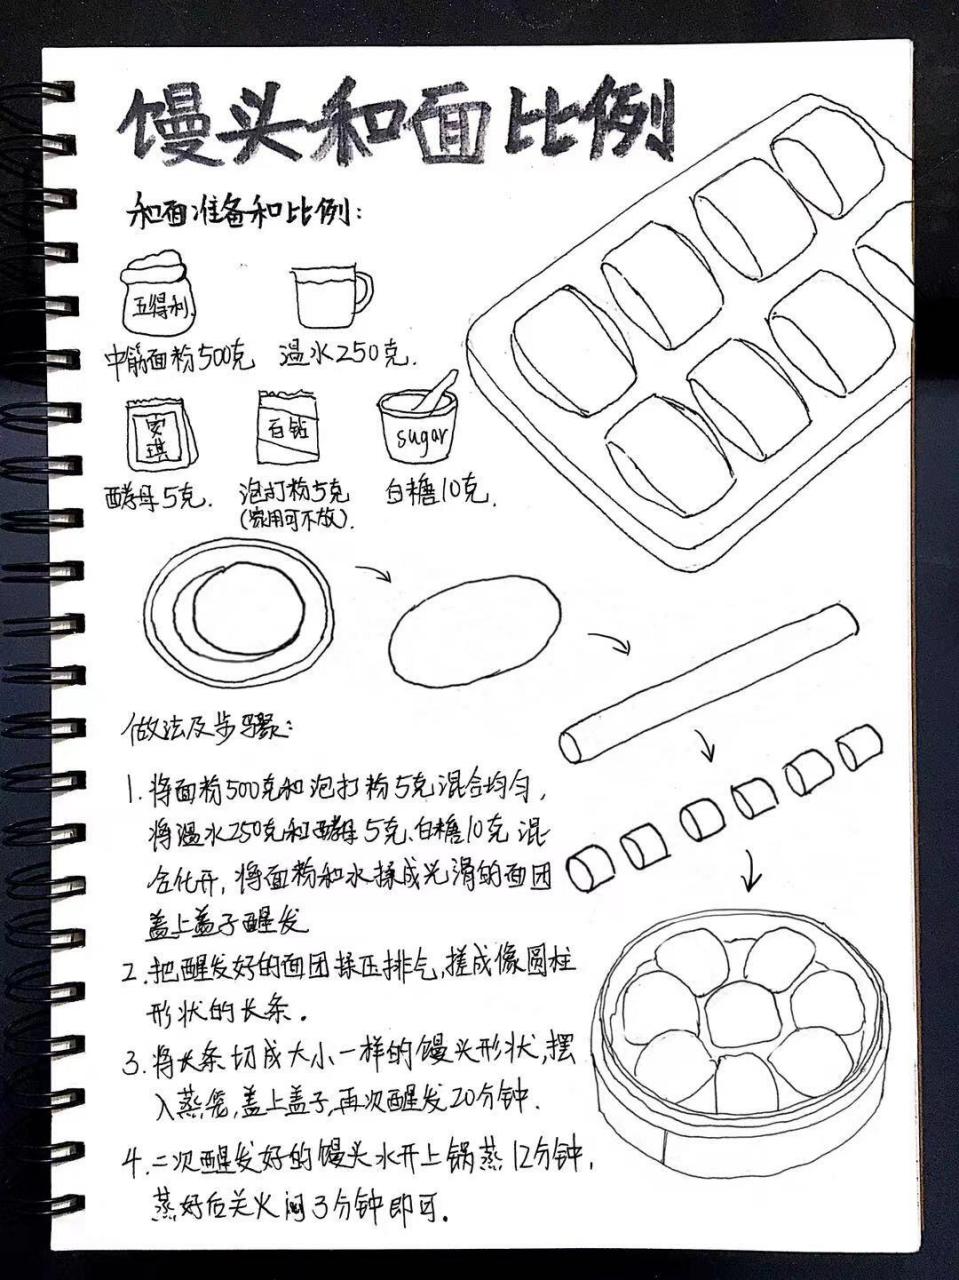 馒头和面比例
和面准备和比例：
五得利
中筋面粉500克 温水250克.
安琪
百钻
sugar
酵母5克. 泡打粉5克 白糖10克.
(家用可不放).
做法及步骤：
1.将面粉500克和泡打粉5克混合均匀,
将温水250克和酵母5克、白糖10克混
合化开,将面粉和水揉成光滑的面团
盖上盖子醒发
2.把醒发好的面团揉压排气,搓成像圆柱
形状的长条.
3.将长条切成大小一样的馒头形状,摆
入蒸笼,盖上盖子,再次醒发20分钟.
4.二次醒发好的馒头水开上锅蒸12分钟,
蒸好后关火闷3分钟即可.